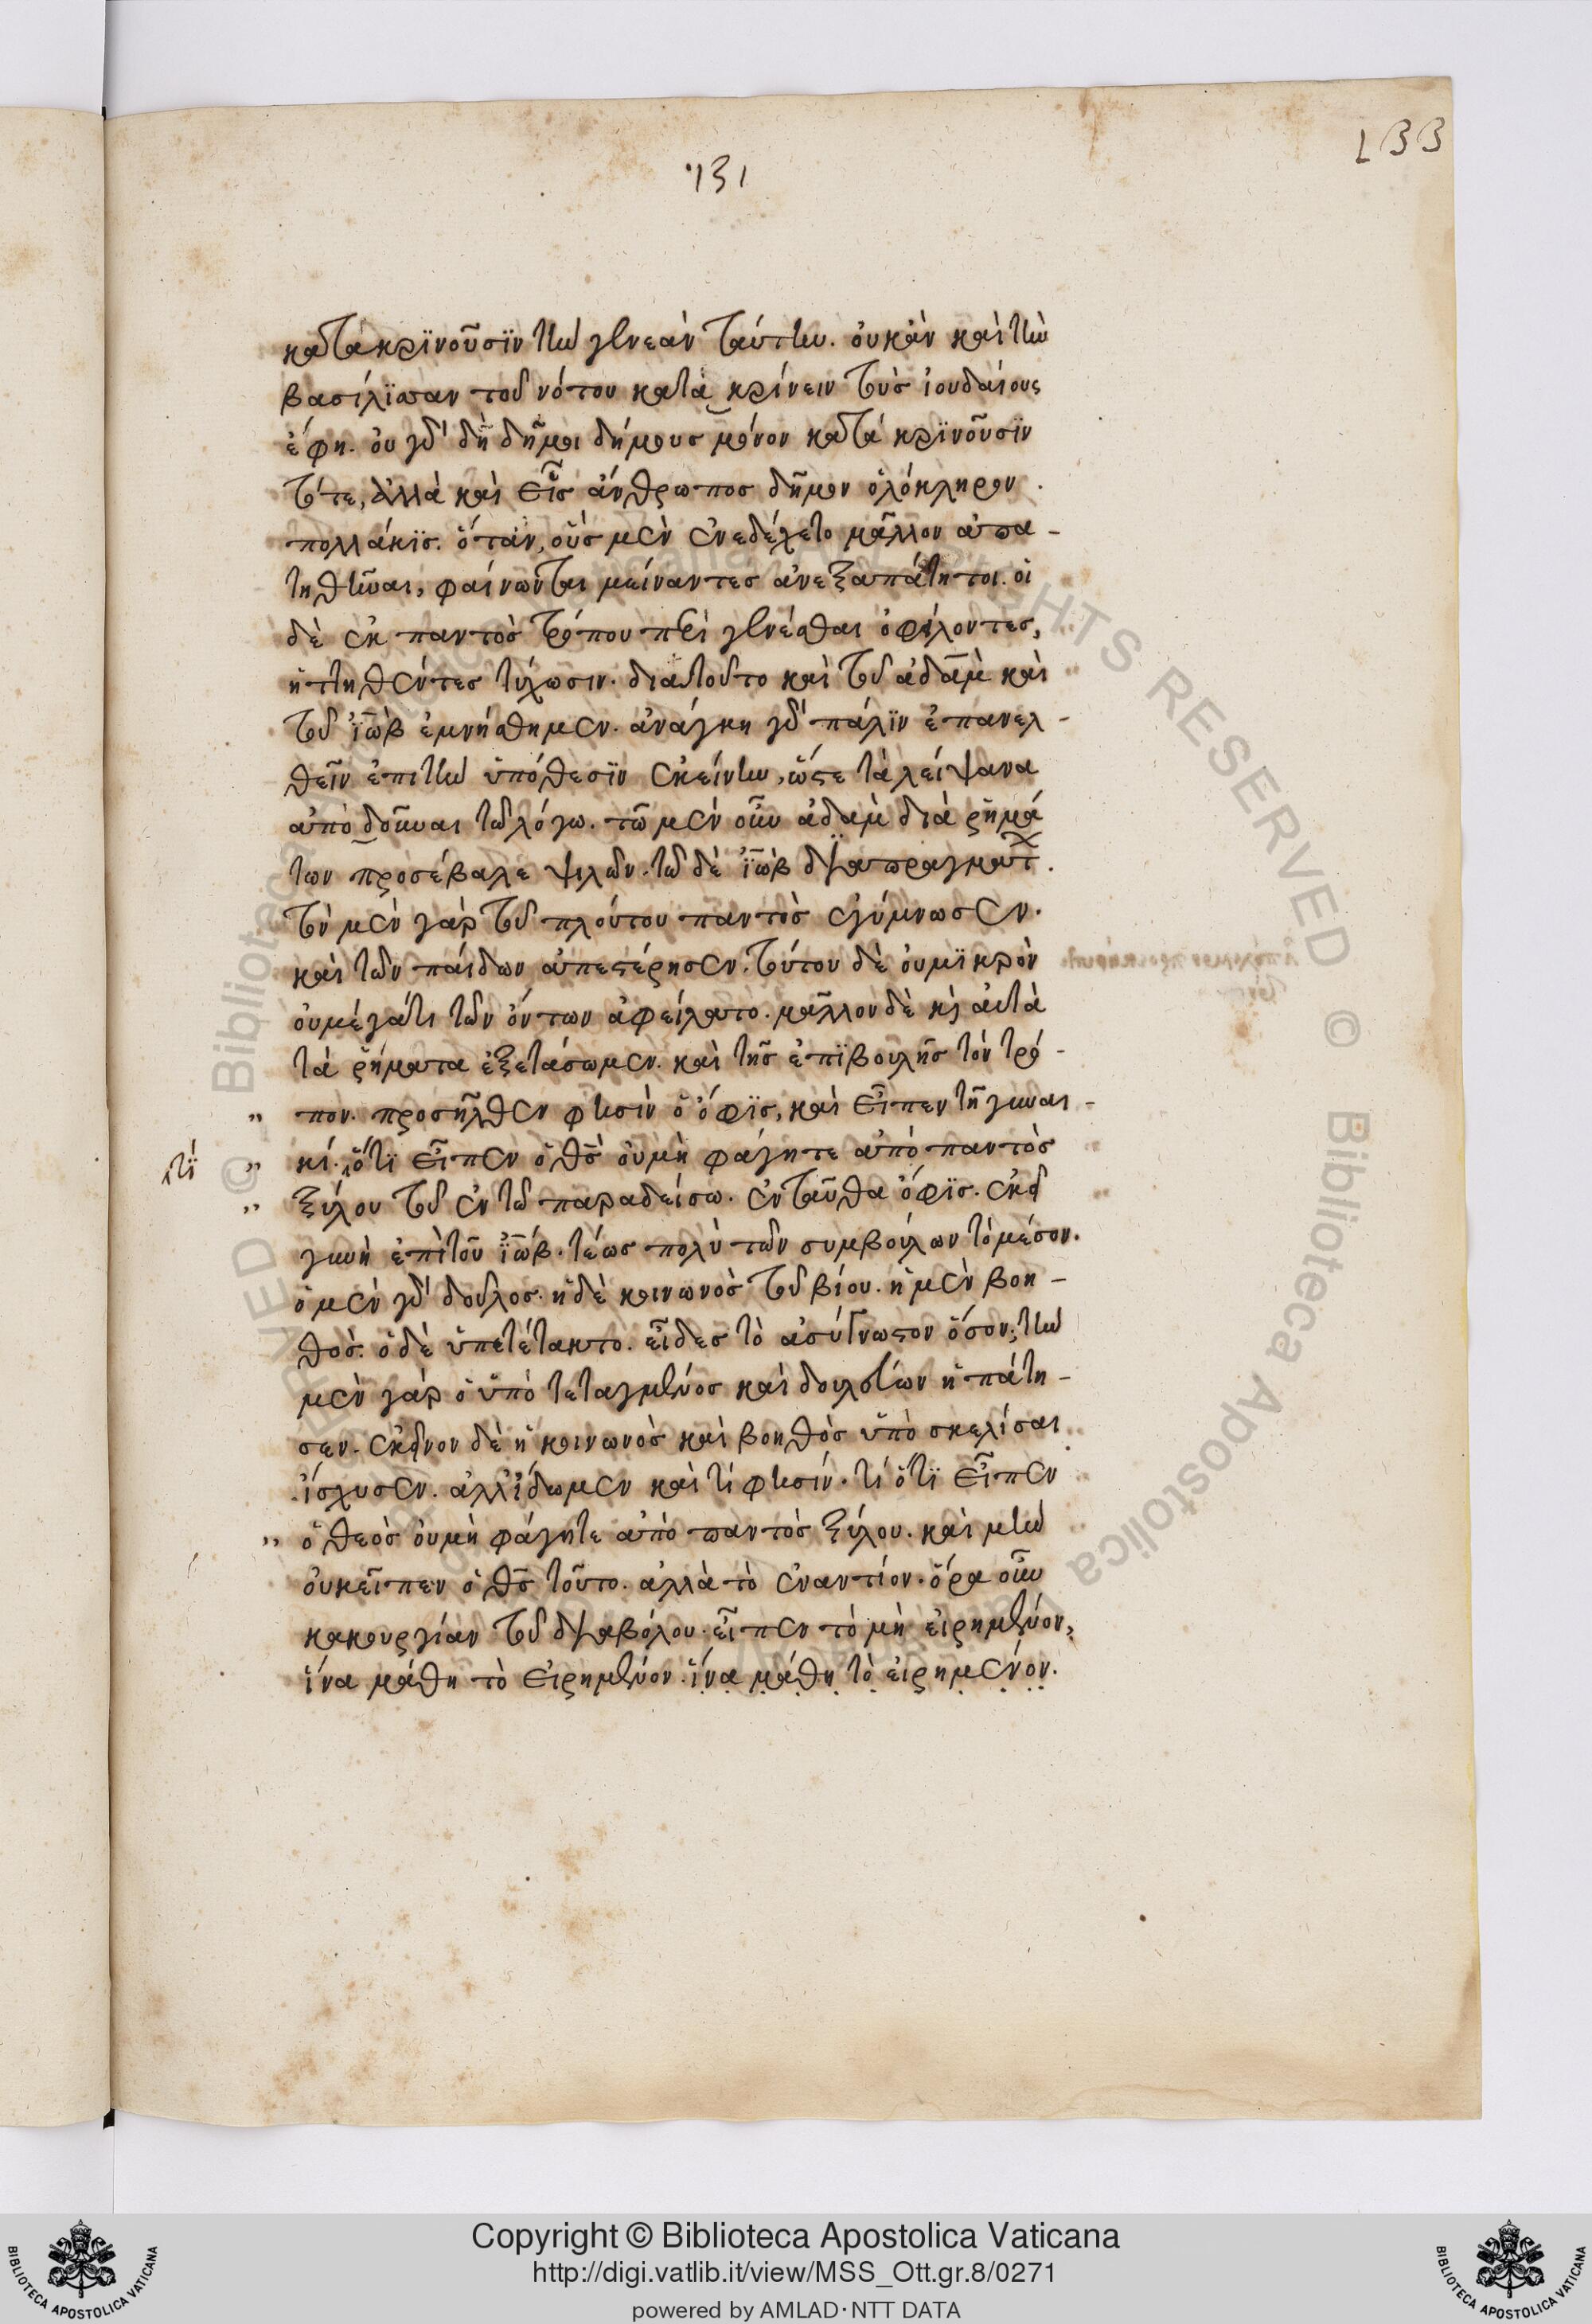 133
131
κατακρϊνοῦσϊν τὴν γενεὰν ταύτην. οὐκὰν καὶ τὴν
βασίλϊσαν τοῦ νότου κατὰ κρίνειν τοὺσ ἰουδαίους
ἔφη. οὐ γὰρ δὴ δῆμοι δήμουσ μόνον κατὰ κρϊνοῦσϊν
τότε, ἀλλὰ καὶ εἷσ ἄνθρωποσ δῆμον ὁλόκληρον.
πολλάκϊσ. ὅταν, οὓσ μὲν ἐνεδέχετο μᾶλλον ἀπα-
τηθῆναι, φαίνωνται μείναντεσ ἀνεξαπάτητοι. οἱ
δὲ ἐκ παντὸσ τρόπου περὶ γενέσθαι ὀφείλοντεσ,
ἡττηθέντεσ τύχωσιν. διατοῦτο καὶ τοῦ ἀδὰμ καὶ
τοῦ ἰὼβ ἐμνήσθημεν. ἀνάγκη γὰρ πάλϊν ἐπανελ-
θεῖν ἐπιτὴν ὑπόθεσϊν ἐκείνην, ὥστε τὰ λείψανα
ἀπὸ δοῦναι τῶ λόγω. τῶ μὲν οὖν ἀδὰμ διὰ ῥημά
των προσέβαλε ψιλῶν. τῶ δὲ ἰὼβ διὰ πραγμάτ.
τὸν μὲν γὰρ τοῦ πλούτου παντὸσ ἐγύμνωσεν.
καὶ τῶν παίδων ἀπεστέρησεν. τούτου δὲ οὐμϊκρὸν
οὐμέγάτι τῶν ὄντων ἀφείλατο. μᾶλλον δὲ κὶ αὐτὰ
τὰ ῥήματα ἐξετάσωμεν. καὶ τῆσ ἐπϊβουλῆσ τὸν τρό-
" πον. προσῆλθεν φησὶν ὁ ὄφϊσ, καὶ εἶπεν τῆ γυναι-
τί " κί. ὅτϊ εἶπεν ὁ θσ οὐμὴ φάγητε ἀπὸ παντὸσ
" ξύλου τοῦ ἐν τῶ παραδείσω. ἐνταῦθα ὄφϊσ. ἐκεῖ
γυνὴ ἐπὶτοῦ ἰώβ. τέωσ πολὺ τῶν συμβούλων τὸμέσον.
ὁ μὲν γὰρ δοῦλοσ. ἡ δὲ κοινωνὸσ τοῦ βίου. ἡ μὲν βοη-
θόσ. ὁ δὲ ὑπετέτακτο. εἶδεσ τὸ ἀσύγνωστον ὅσον; τὴν
μὲν γὰρ ὁ ὑπὸ τεταγμένοσ καὶ δουλεύων ἠπάτη-
σεν. ἐκεῖνον δὲ ἡ κοινωνὸσ καὶ βοηθὸσ ὑπὸ σκελίσαι
ἴσχυσεν. ἀλλἴδωμεν καὶ τί φησίν. τί ὅτϊ εἶπεν
" ὁ θεὸσ οὐμὴ φάγητε ἀπὸ παντὸσ ξύλου. καὶ μὴν
οὐκεῖπεν ὁ θσ τοῦτο. ἀλλὰ τὸ ἐναντίον. ὅρα οὖν
κακουργίαν τοῦ διαβόλου. εἶπεν τὸ μὴ εἰρημένον,
ἵνα μάθη τὸ εἰρημένον. ἵνα μάθη τὸ εἰρημένον.
RIGHTS RESERVED © Biblioteca Apostolica
Copyright © Biblioteca Apostolica Vaticana
http://digi.vatlib.it/view/MSS_Ott.gr.8/0271
powered by AMLAD·NTT DATA
BIBLIOTECA APOSTOLICA VATICANA
BIBLIOTECA APOSTOLICA VATICANA